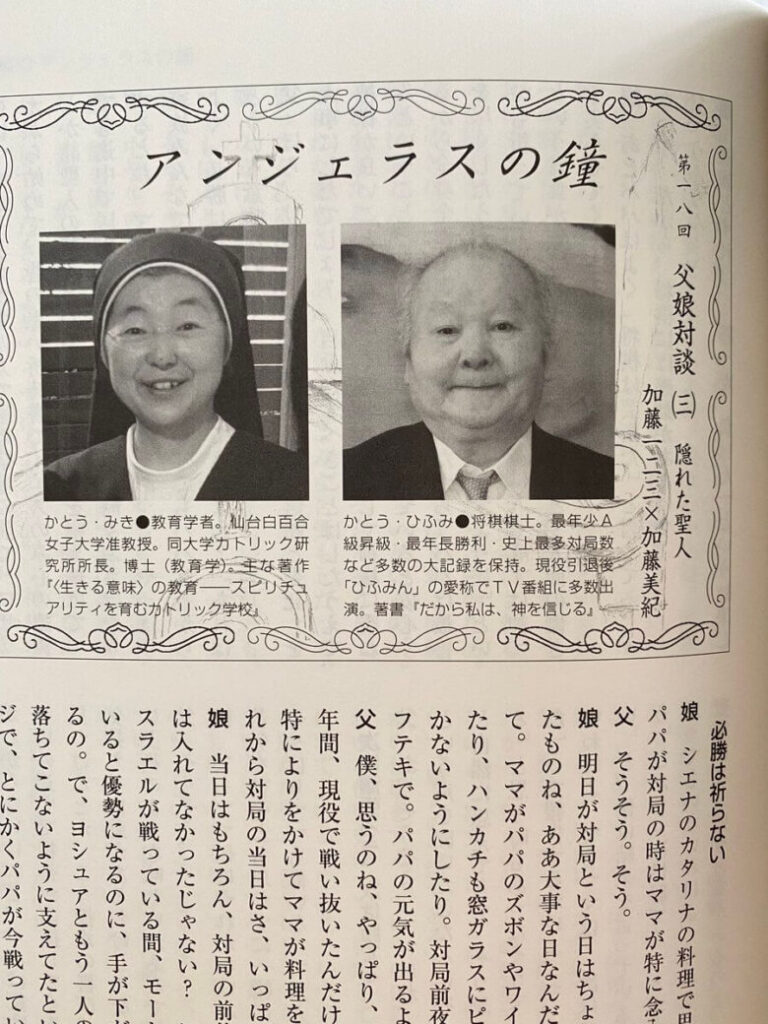 アンジェラスの鐘
第一八回 父娘対談 ㈢ 隠れた聖人
加藤一二三×加藤美紀
かとう・ひふみ●将棋棋士。最年少A
級昇級・最年長勝利・史上最多対局数
など多数の大記録を保持。現役引退後
「ひふみん」の愛称でTV番組に多数出
演。著書『だから私は、神を信じる』
かとう・みき●教育学者。仙台白百合
女子大学准教授。同大学カトリック研
究所所長。博士（教育学）。主な著作
『〈生きる意味〉の教育――スピリチュ
アリティを育むカトリック学校』
必勝は祈らない
娘 シエナのカタリナの料理で思
パパが対局の時はママが特に念
父 そうそう。そう。
娘 明日が対局という日はちょ
たものね、ああ大事な日なんだ
て。ママがパパのズボンやワイ
たり、ハンカチも窓ガラスにピ
かないようにしたり。対局前夜
フテキで。パパの元気が出るよ
父 僕、思うのね、やっぱり、
年間、現役で戦い抜いたんだけ
特によりをかけてママが料理を
れから対局の当日はさ、いっぱ
娘 当日はもちろん、対局の前
は入れてなかったじゃない？
スラエルが戦っている間、モー
いると優勢になるのに、手が下が
るの。で、ヨシュアともう一人の
落ちてこないように支えてたとい
ジで、とにかくパパが今戦ってい